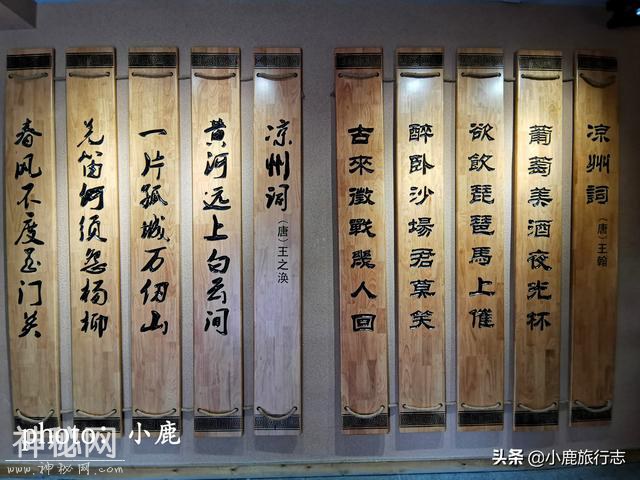 凉州詞
（唐）王翰
葡萄美酒夜光杯
欲飲琵琶馬上催
醉卧沙場君莫笑
古來徵戰幾人回
凉州词
（唐）王之涣
黄河远上白云间
一片孤城万仞山
羌笛何须怨杨柳
春风不度玉门关
photo：小鹿
神秘网
www.神秘网.com
头条 @小鹿旅行志